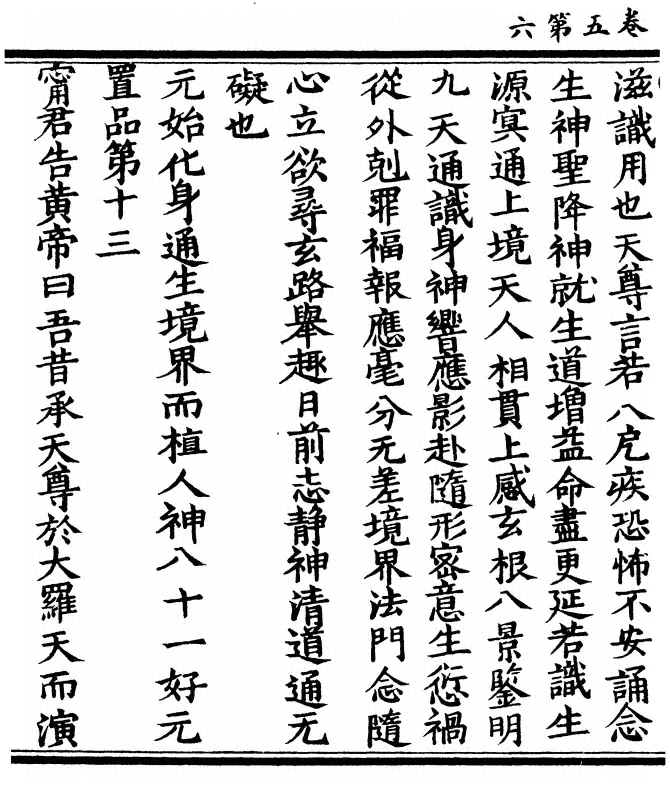 卷五第六
滋識用也天尊言若八戹疾恐怖不安誦念
生神聖降神就生道增益命盡更延若識生
源㝠通上境天人相貫上感玄根八景鑒明
九天通識身神響應影赴隨形密意生愆禍
從外剋罪福報應毫分无差境界法門念隨
心立欲尋玄路舉趣日前志静神清道通无
礙也
元始化身通生境界而植人神八十一好元
置品第十三
甯君告黃帝曰吾昔承天尊於大羅天而演